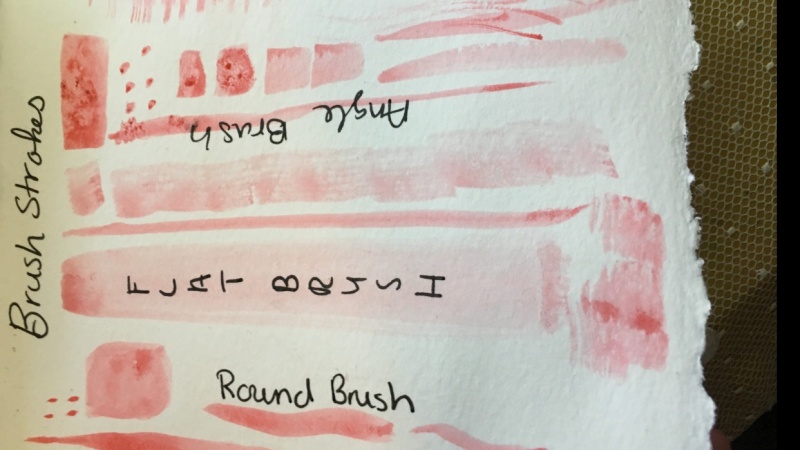 Brush Strokes
Angle Brush
FLAT BRUSH
Round Brush